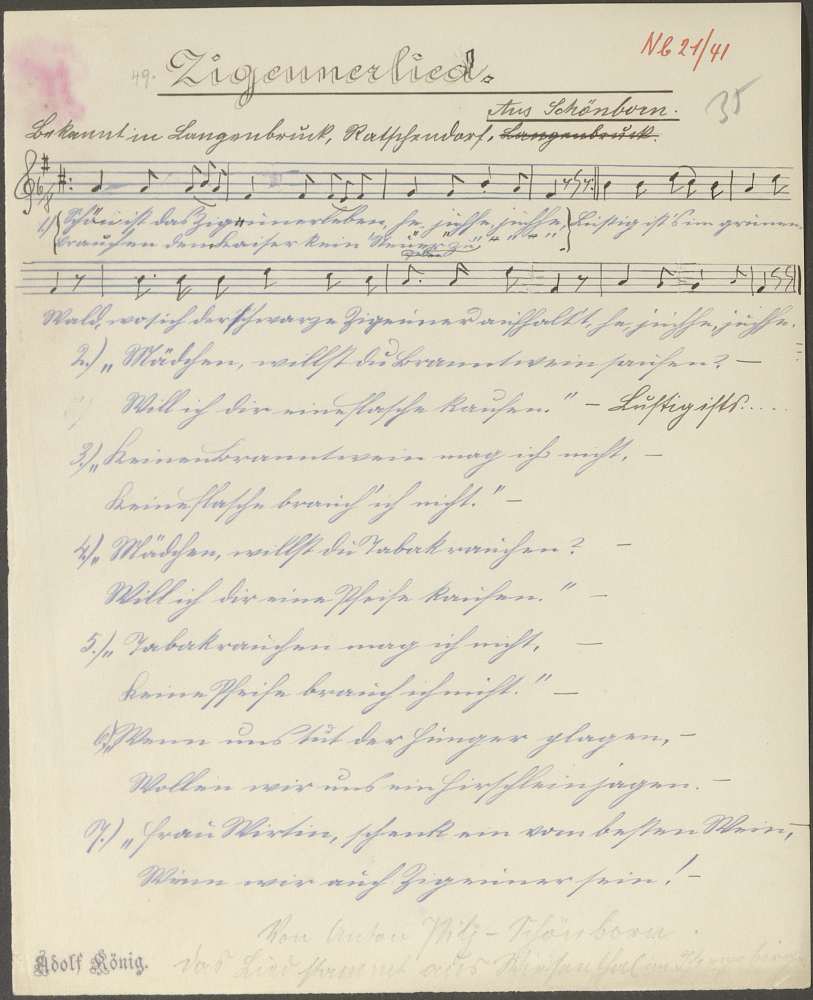 Nb 21/41
49. Zigeunerlied.
35
Aus Schönborn.
Bekannt in Langenbruck, Ratschendorf, Langenbruck.
1.) Schön ist das Zigeunerleben, he, juchhe, juchhe, Lustig ist's im grünen
brauchen dem Kaiser kein Steuer zu " " " "
geben
Wald, wo sich der schwarze Zigeuner aufhallt, he, juchhe, juchhe.
2.) „Mädchen, willst du Branntwein saufen? –
Will ich dir eine Flasche kaufen." – Lustig ists.....
3.) „Keinen Branntwein mag ich nicht, –
Keine Flasche brauch' ich nicht." –
4.) „Mädchen, willst du Tabak rauchen? –
Will ich dir eine Pfeife kaufen." –
5.) „Tabakrauchen mag ich nicht, –
Keine Pfeife brauch ich nicht." –
6.) Wenn uns tut der Hunger plagen, –
Wollen wir uns ein Hirschlein jagen. –
7.) „Frau Wirtin, schenk ein vom besten Wein, –
Wenn wir auch Zigeuner sein! –
Von Anton Pilz – Schönborn.
das Lied stammt aus Wiesenthal
Adolf König.